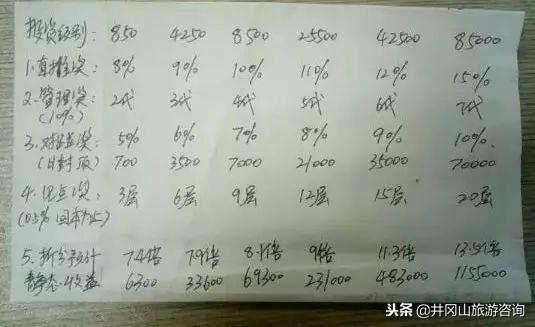 投资级别: 850 4250 8500 25500 42500 85000
1.直推奖: 8% 9% 10% 11% 12% 15%
2.管理奖: 2代 3代 4代 5代 6代 7代
(10%)
3.对碰奖: 5% 6% 7% 8% 9% 10%
(日封顶) 700 3500 7000 21000 35000 70000
4.见点奖: 3层 6层 9层 12层 15层 20层
(0.5% 回本为止)
5.拆分预计 7.4倍 7.9倍 8.1倍 9倍 11.3倍 13.5倍
静态收益 6300 33600 69300 231000 483000 1155000
头条@井冈山旅游咨询